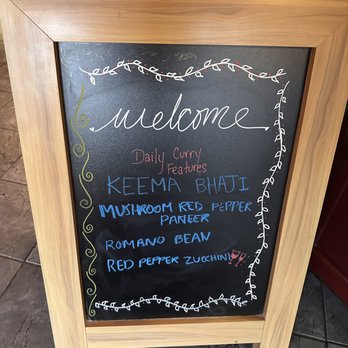 welcome
Daily Curry
Features
KEEMA BHAJI
MUSHROOM RED PEPPER
PANEER
ROMANO BEAN
RED PEPPER ZUCCHINI